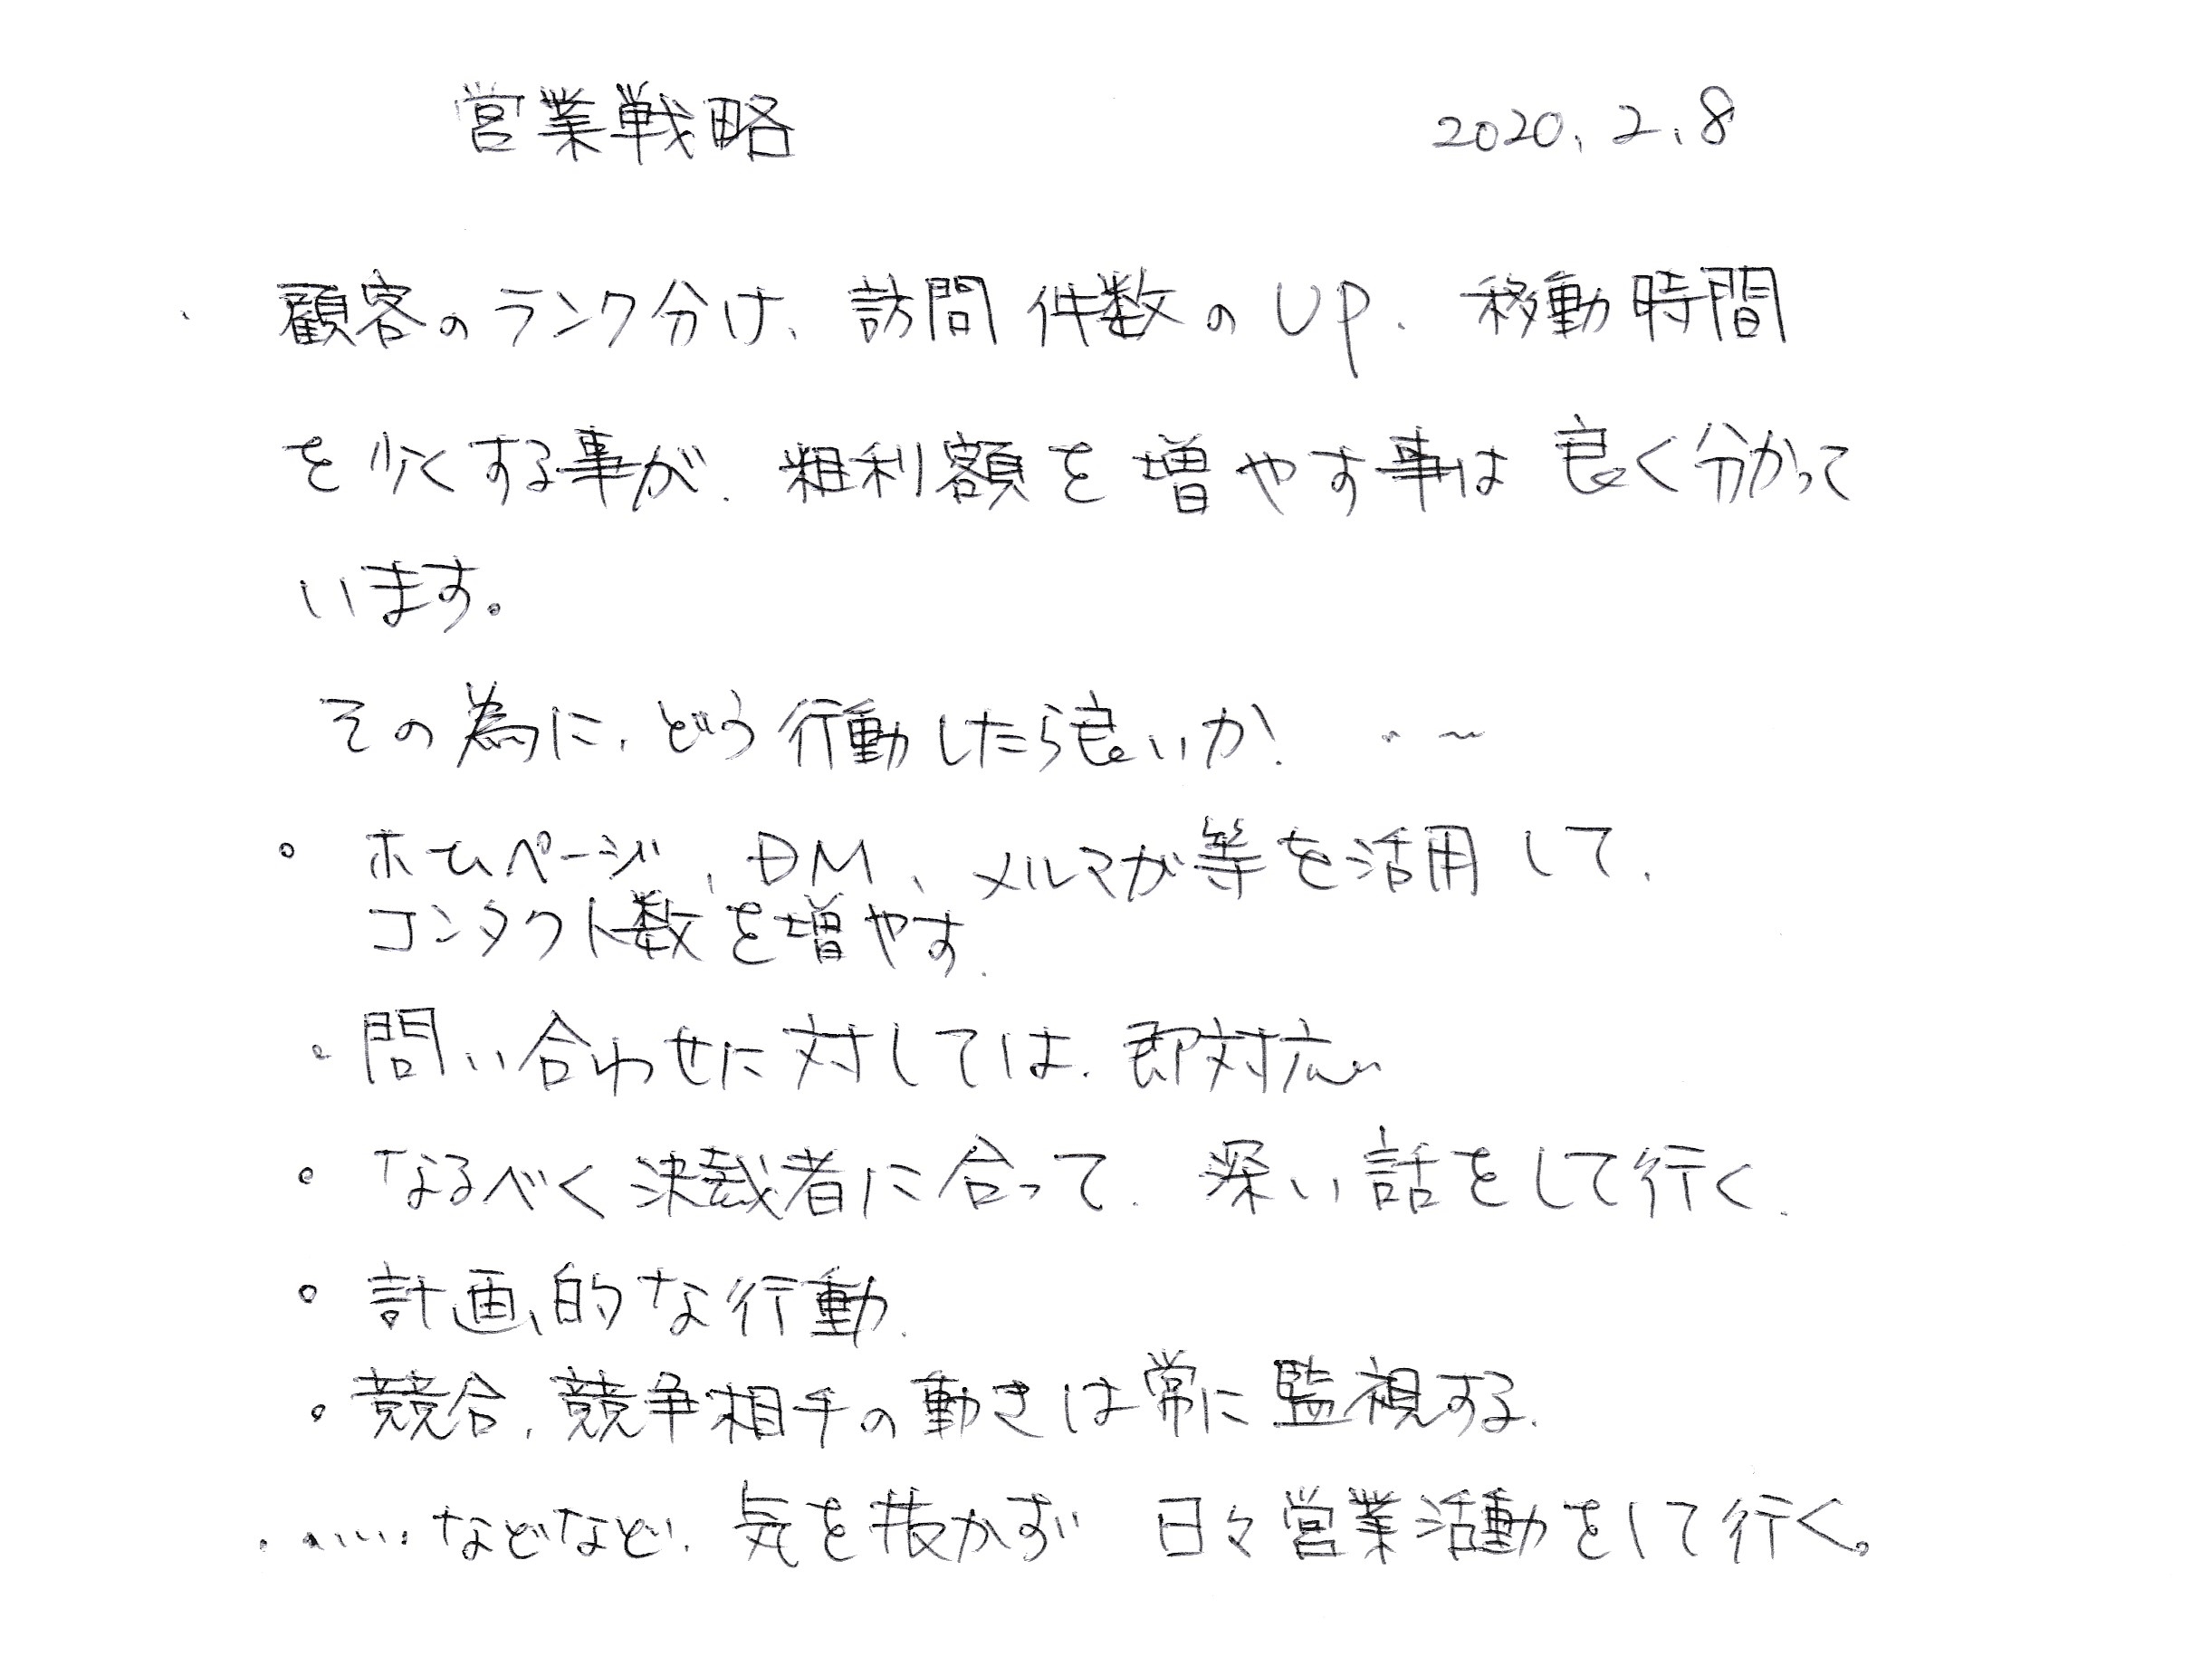 営業戦略 2020.2.8
顧客のランク分け、訪問件数のUP、移動時間
を少くする事が、粗利額を増やす事は良く分かって
います。
その為に、どう行動したら良いか! ・・~
・ホームページ、DM、メルマガ等を活用して、
コンタクト数を増やす、
・問い合わせに対しては、即対応
・なるべく決裁者に合って、深い話をして行く、
・計画的な行動、
・競合、競争相手の動きは常に監視する、
・・・・・・などなど、気を抜かず 日々営業活動をして行く。